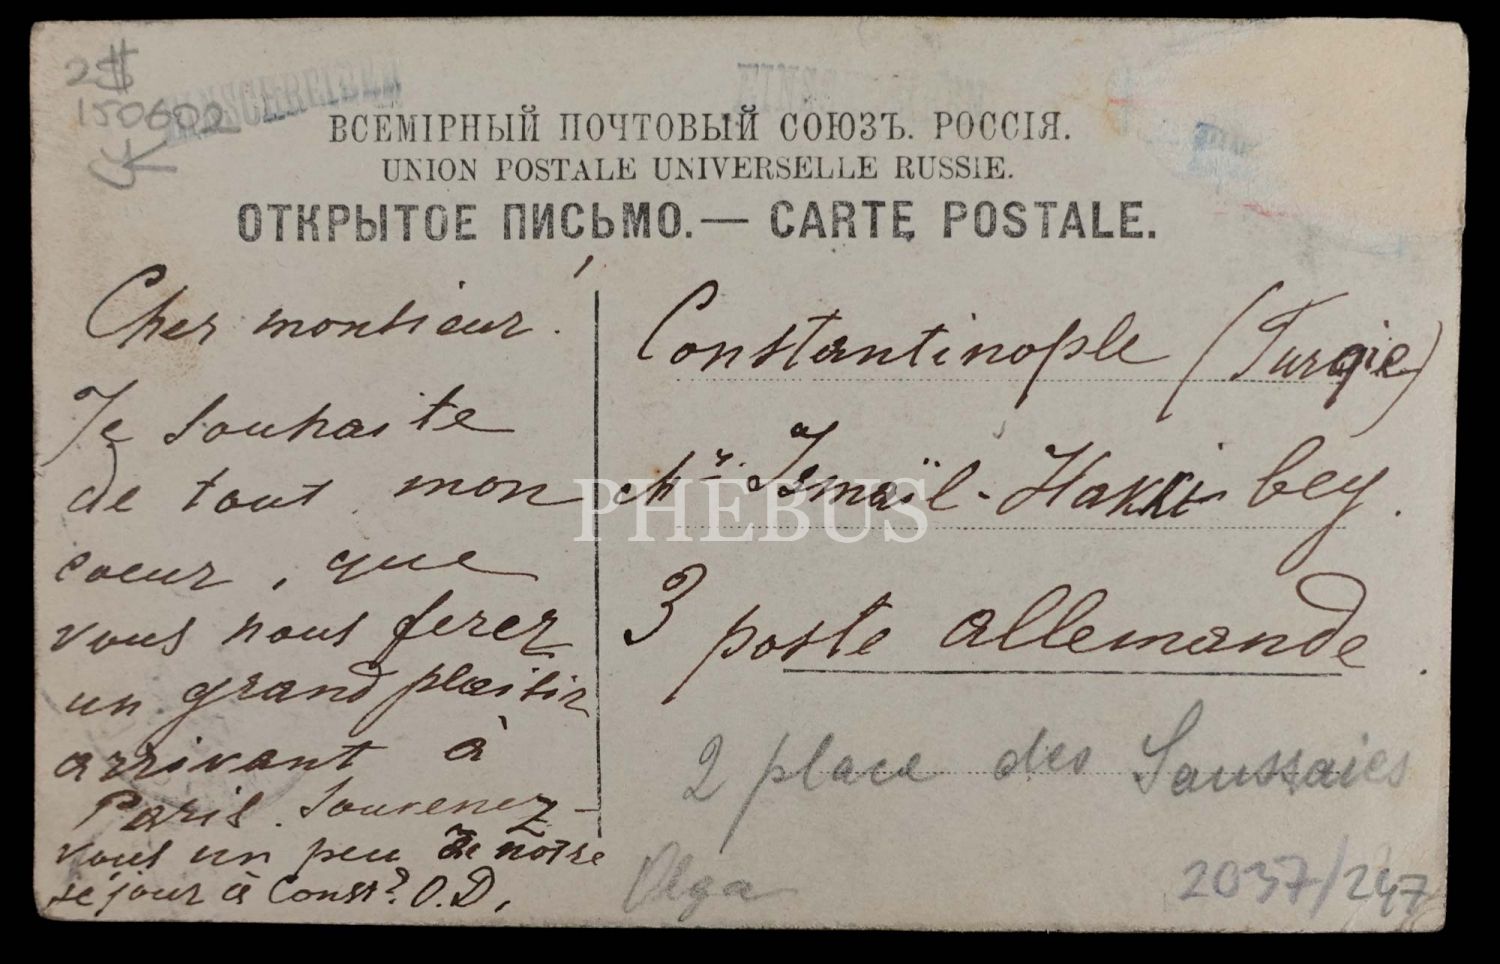 2$
150602
EINSCHREIBEN
ВСЕМІРНЫЙ ПОЧТОВЫЙ СОЮЗЪ. РОССІЯ.
UNION POSTALE UNIVERSELLE RUSSIE.
ОТКРЫТОЕ ПИСЬМО.— CARTE POSTALE.
Cher monsieur!
Je souhaite
de tout mon
coeur, que
vous nous ferez
un grand plaisir
arrivant à
Paris. Souvenez-
vous un peu de notre
séjour à Const? O.D.
Constantinople (Turqie)
Mr. Ismaïl-Hakki bey.
3 poste allemande.
2 place des Saussaies
Olga
2037/247
PHEBUS